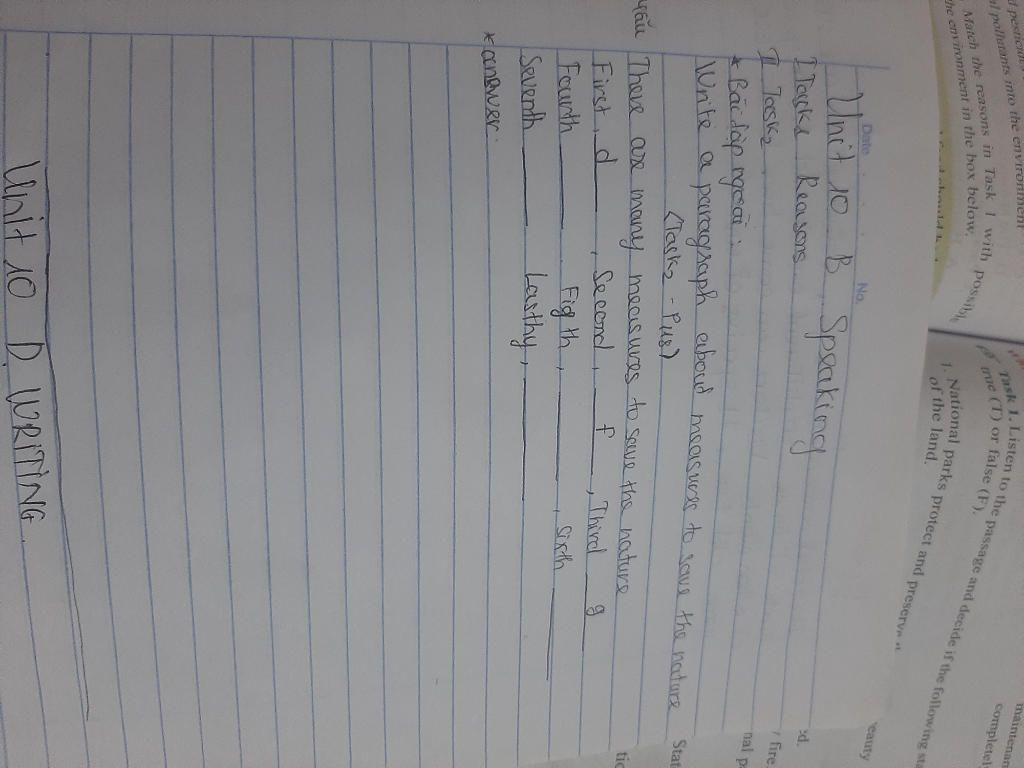 d pesticides into the environment
. Match the reasons in Task 1 with possibl
he environment in the box below.
Task 1. Listen to the passage and decide if the following sta
true (T) or false (F).
1. National parks protect and preserve
of the land.
maintenan
completel
eauty
Date
No.
Unit 10 B Speaking
I Task1 Reasons
II Task2
* Bài tập ngoài:
Write a paragraph about measures to save the nature
(Task2 - P118)
There are many measures to save the nature
First, d ____, Second, __ f __, Third __ g __
Fourth ____, Figth, ____, Sixth ____
Seventh ____ Lasthy, ____
* answer:
Unit 10 D. WRITING.